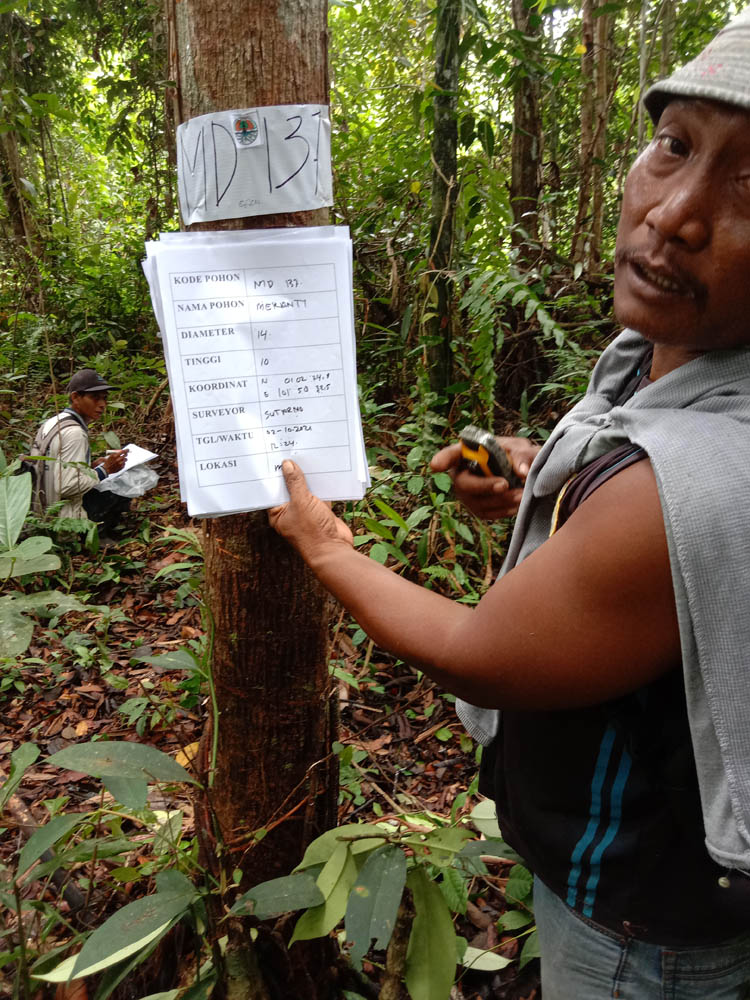 MD 137
KODE POHON MD 137.
NAMA POHON MERANTY
DIAMETER 14.
TINGGI 10
KOORDINAT N 01 02 24.9
E 101 50 32.5
SURVEYOR SUTARNO
TGL/WAKTU 02-10-2021
12:24.
LOKASI